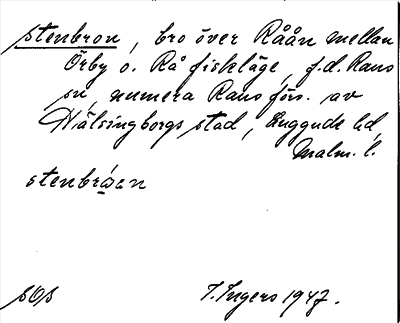 stenbron, bro över Råån mellan
Örby o. Rå fiskläge, f.d. Raus
sn, numera Raus förs. av
Hälsingborgs stad, Luggude hd,
Malm. l.
stenbroen
sOs
I. Ingers 1947.